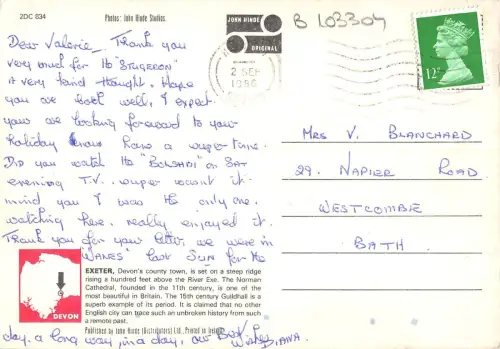 2DC 834
Photos: John Hinde Studios.
JOHN HINDE
ORIGINAL
B L03304
2 SEP
1986
12P
Dear Valerie, Thank you
very much for the "STURGEON"
a very kind thought. Hope
you are both well, I expect
your are looking forward to your
holiday have a super time.
Did you watch the "BOLSHOI" on Sat
evening T.V. super wasnt it.
mind you I was the only one
watching here, really enjoyed it.
Thank you for your letter, we were in
"WALES" last Sun for the
day, a long way, in a day, our Best
Wishes, DIANA.
MRS V. BLANCHARD
29. NAPIER ROAD
WESTCOMBE
BATH.
DEVON
EXETER, Devon's county town, is set on a steep ridge
rising a hundred feet above the River Exe. The Norman
Cathedral, founded in the 11th century, is one of the
most beautiful in Britain. The 15th century Guildhall is a
superb example of its period. It is claimed that no other
English city can trace such an unbroken history from such
a remote past.
Published by John Hinde (Distributors) Ltd., Printed in Ireland.